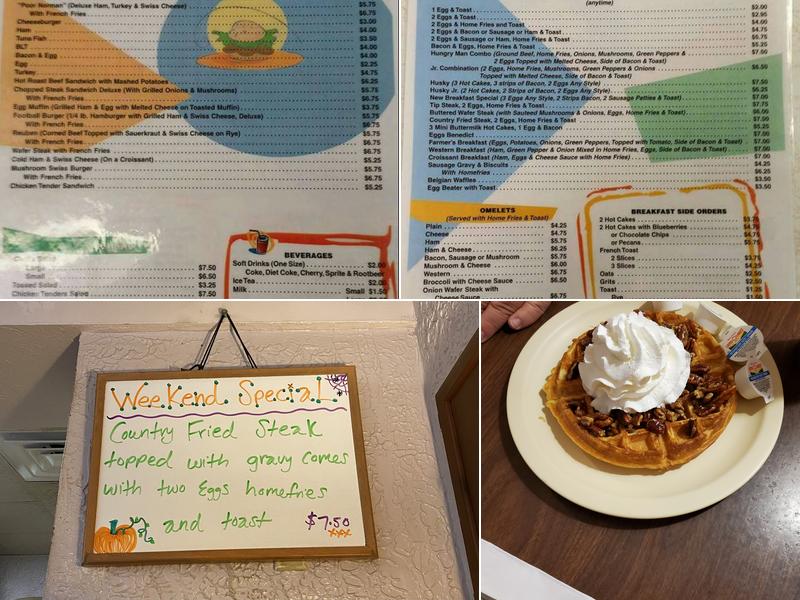 "Poor Norman" (Deluxe Ham, Turkey & Swiss Cheese) $5.75
Cheeseburger $3.00
Ham $4.00
Tuna Fish $3.50
BLT $4.00
Bacon & Egg $4.00
Egg $2.25
Turkey $4.75
Hot Roast Beef Sandwich with Mashed Potatoes $6.25
Chopped Steak Sandwich Deluxe (With Grilled Onions & Mushrooms) $5.25
With French Fries $6.75
Egg Muffin (Grilled Ham & Egg with Melted Cheese on Toasted Muffin) $3.75
Football Burger (1/4 lb. Hamburger with Grilled Ham & Swiss Cheese, Deluxe) $5.25
With French Fries $6.75
Reuben (Corned Beef Topped with Sauerkraut & Swiss Cheese on Rye) $5.25
With French Fries $6.75
Wafer Steak with French Fries $6.75
Cold Ham & Swiss Cheese (On a Croissant) $5.25
Mushroom Swiss Burger $5.75
With French Fries $6.75
Chicken Tender Sandwich $5.25
$7.50
Small $6.50
Tossed Salad $3.25
Chicken Tenders Salad $7.50
BEVERAGES
Soft Drinks (One Size) $2.00
Coke, Diet Coke, Cherry, Sprite & Rootbeer
Ice Tea $2.00
Milk Small $1.50
(anytime)
1 Egg & Toast $2.00
2 Eggs & Toast $2.95
2 Eggs & Home Fries and Toast $4.00
2 Eggs & Bacon or Sausage or Ham & Toast $4.75
2 Eggs & Sausage or Ham, Home Fries & Toast $5.75
Bacon & Eggs, Home Fries & Toast $5.25
Hungry Man Combo (Ground Beef, Home Fries, Onions, Mushrooms, Green Peppers &
2 Eggs Topped with Melted Cheese, Side of Bacon & Toast) $7.50
Jr. Combination (2 Eggs, Home Fries, Mushrooms, Green Peppers & Onions $6.50
Topped with Melted Cheese, Side of Bacon & Toast)
Husky (3 Hot Cakes, 3 strips of Bacon, 2 Eggs Any Style) $7.50
Husky Jr. (2 Hot Cakes, 2 Strips of Bacon, 2 Eggs Any Style) $6.25
New Breakfast Special (3 Eggs Any Style, 2 Strips Bacon, 2 Sausage Patties & Toast) $7.00
Tip Steak, 2 Eggs, Home Fries & Toast $7.75
Buttered Wafer Steak (with Sauteed Mushrooms & Onions, Eggs, Home Fries & Toast) $6.00
Country Fried Steak, 2 Eggs, Home Fries & Toast $7.00
3 Mini Buttermilk Hot Cakes, 1 Egg & Bacon $5.25
Eggs Benedict $7.00
Farmer's Breakfast (Eggs, Potatoes, Onions, Green Peppers, Topped with Tomato, Side of Bacon & Toast) $7.00
Western Breakfast (Ham, Green Pepper & Onion Mixed in Home Fries, Eggs, Side of Bacon & Toast) $7.00
Croissant Breakfast (Ham, Eggs & Cheese Sauce with Home Fries) $7.00
Sausage Gravy & Biscuits $4.25
With Homefries $6.25
Belgian Waffles $3.50
Egg Beater with Toast $3.50
OMELETS
(Served with Home Fries & Toast)
Plain $4.25
Cheese $4.75
Ham $5.75
Ham & Cheese $6.25
Bacon, Sausage or Mushroom $5.75
Mushroom & Cheese $6.00
Western $6.75
Broccoli with Cheese Sauce $6.50
Onion Wafer Steak with
Cheese Sauce
BREAKFAST SIDE ORDERS
2 Hot Cakes
2 Hot Cakes with Blueberries $4.75
or Chocolate Chips
or Pecans
French Toast
2 Slices
3 Slices $4.25
Oats
Grits
Toast
Rye
Weekend Special
Country Fried Steak
topped with gravy comes
with two Eggs homefries
and toast $7.50
xxx